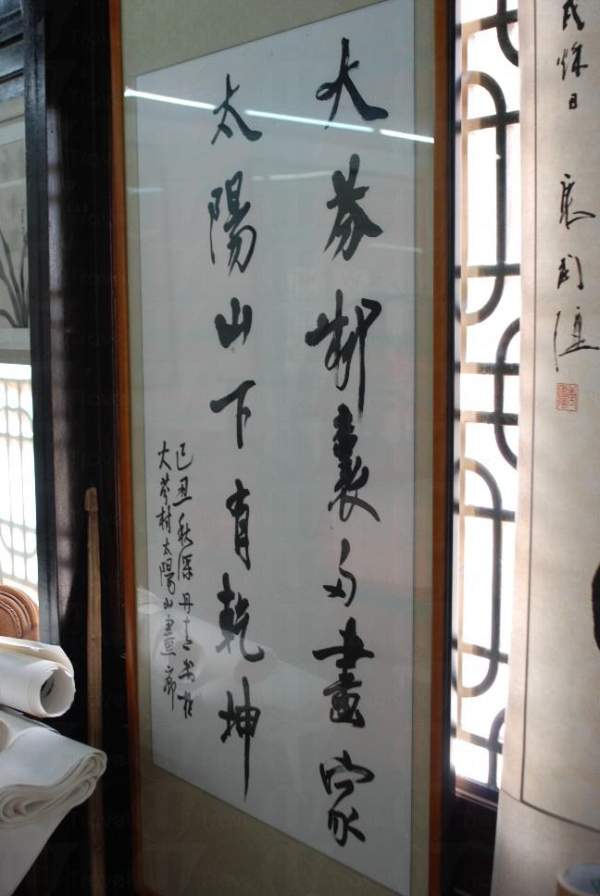 大芬村裏多畫家
太陽山下有乾坤
己丑秋深丹青於
大芬村太陽山畫廊